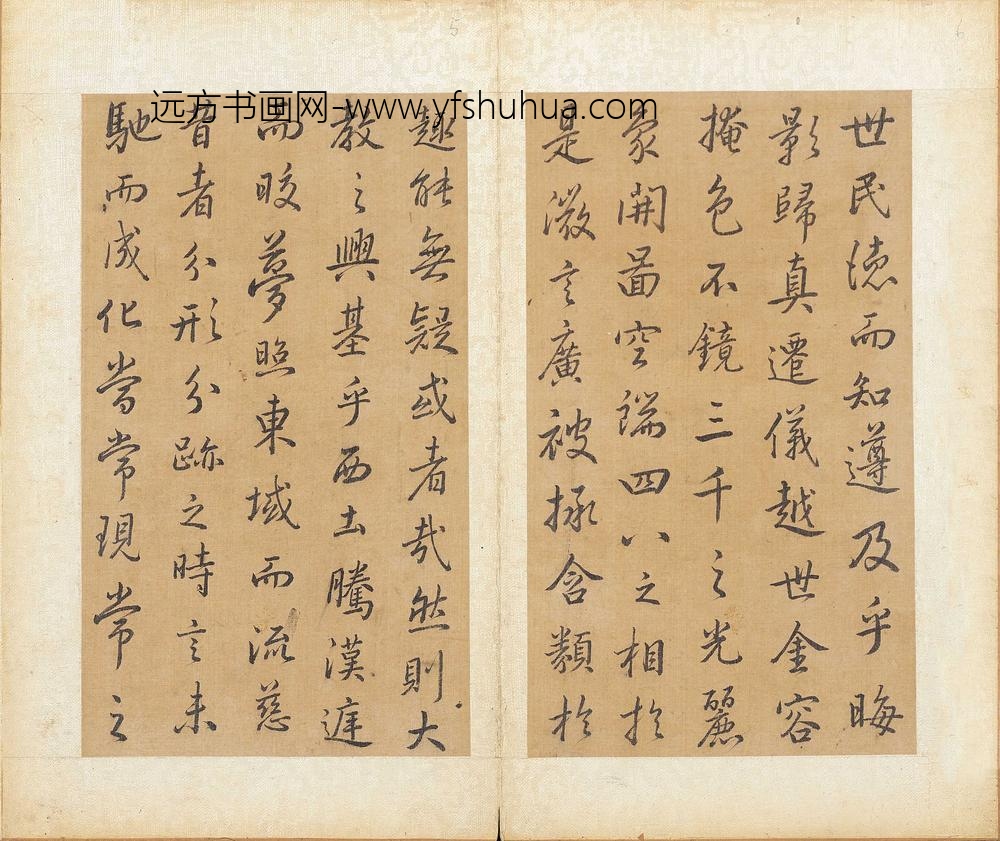 远方书画网-www.yfshuhua.com
6
世民德而知遵及乎晦
影歸真遷儀越世金容
掩色不鏡三千之光麗
象開圖空端四八之相於
是微言廣被拯含類於
5
趣能無疑或者哉然則大
教之興基乎西土騰漢庭
而晈夢照東域而流慈
昔者分形分跡之時言未
馳而成化當常現常之